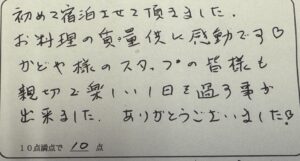 初めて宿泊させて頂きました.
お料理の質・量供に感動です♡
かどや様のスタッフの皆様も
親切で楽しい1日を過す事が
出来ました. ありがとうございました♡
10点満点で 10 点